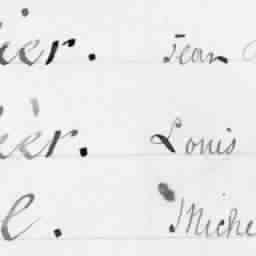 ier. Jean
ièr. Louis
e. Miche